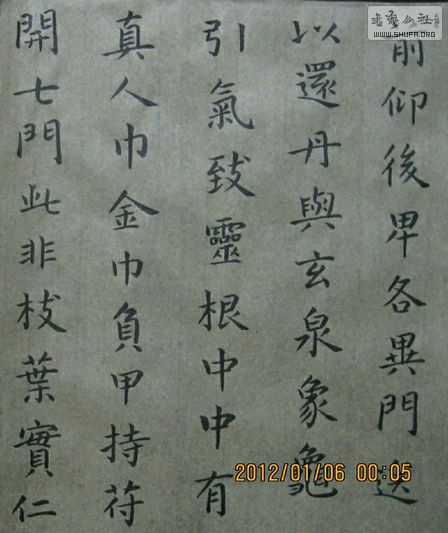 書藝公社
WWW.SHUFA.ORG
前仰後卑各異門送
以還丹與玄泉象龜
引氣致靈根中中有
真人巾金巾負甲持苻
開七門此非枝葉實仁
2012/01/06 00:05